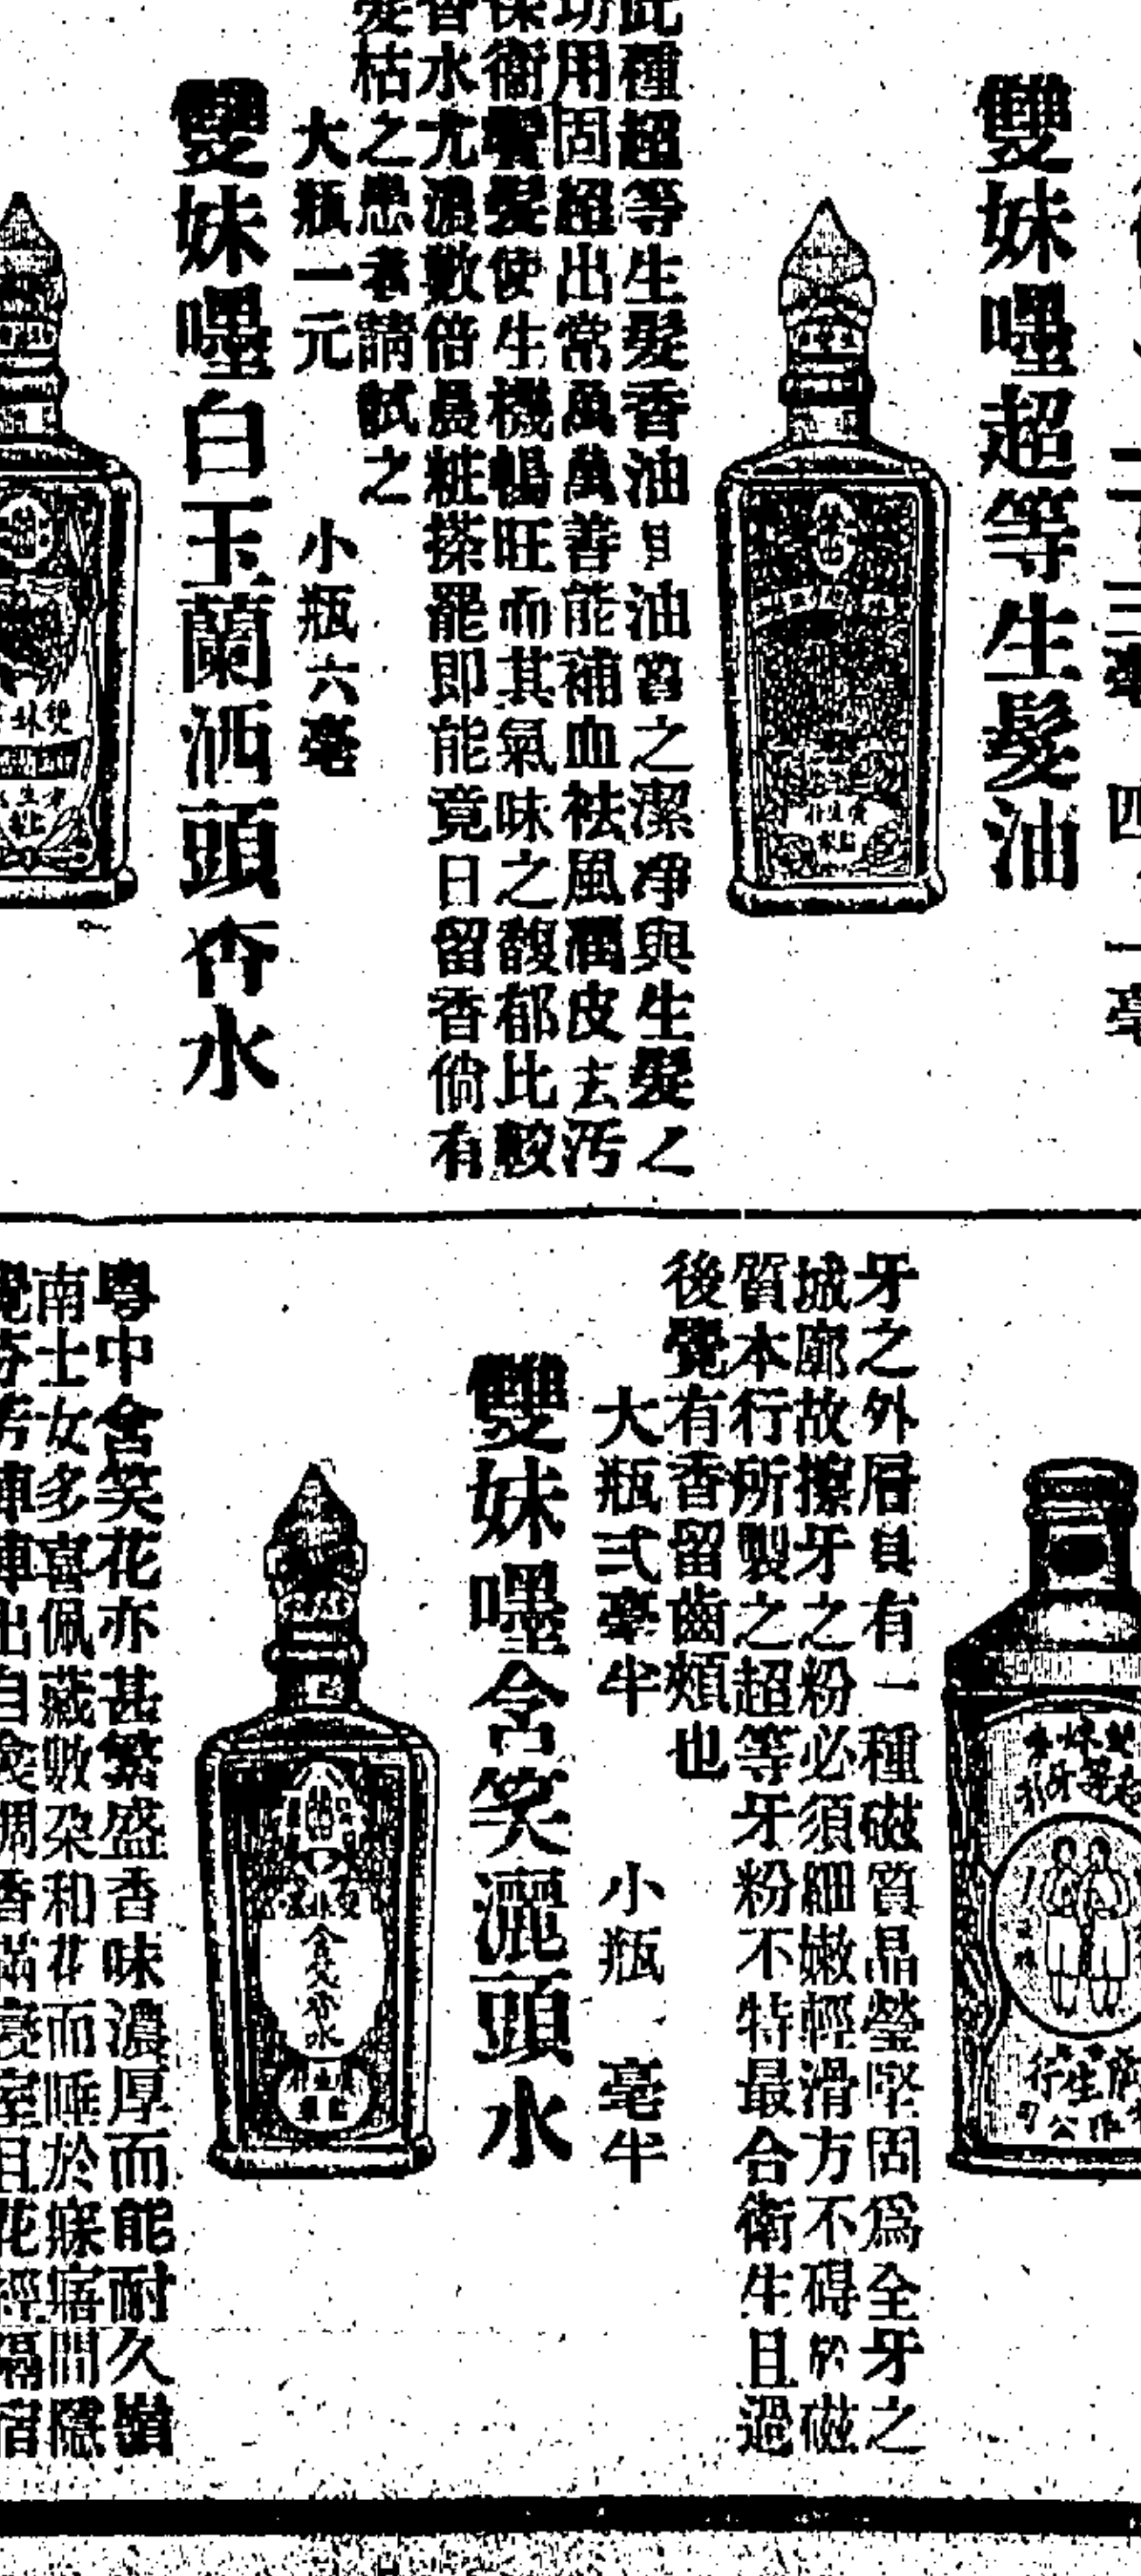 二 三毫 四 一毫
雙妹嚜超等生髮油
此種超等生髮香油其油質之潔净與生髮之
功用固超出常萬萬善能補血袪風潤皮去汚
保衞鬢髮使生機暢旺而其氣味之馥郁比較
香水尤濃數倍晨粧搽罷即能竟日留香倘有
髮枯之患者請試之
大瓶一元 小瓶六毫
雙妹嚜白玉蘭洒頭香水
牙之外層負有一種磁質晶瑩堅固爲全牙之
城廓故擦牙之粉必須細嫩輕滑方不碍於磁
質本行所製之超等牙粉不特最合衛生且過
後覺有香留齒頰也
大瓶弍毫半 小瓶 毫半
雙妹嚜含笑灑頭水
含笑香水
粤中含笑花亦甚繁盛香味濃厚而能耐久嶺
南士女多喜佩藏數朶和花而睡於寐寤間隱